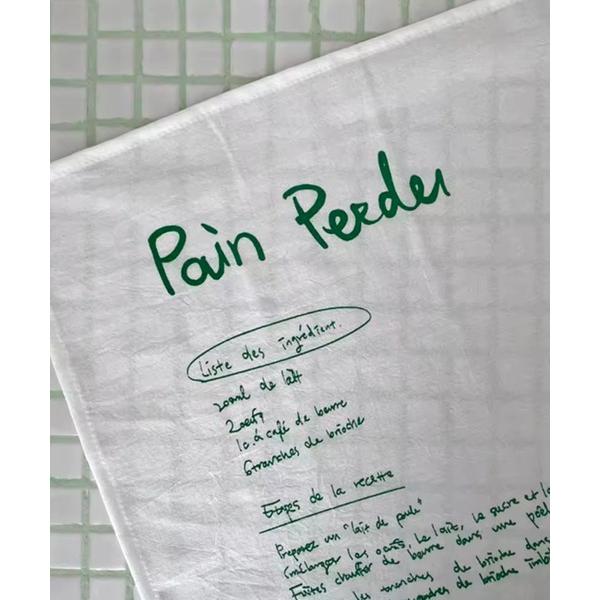 Pain Perdu
Liste des ingrédient.
200ml de lait
2oeufs
1c.à café de beurre
6tranches de brioche
Etapes de la recette
Preparez un "lait de poule"
(mélangez les oeufs, le lait, le sucre et la
Faites chauffer de beurre dans une poêl
les tranches de brioche dans
de brioche imbi